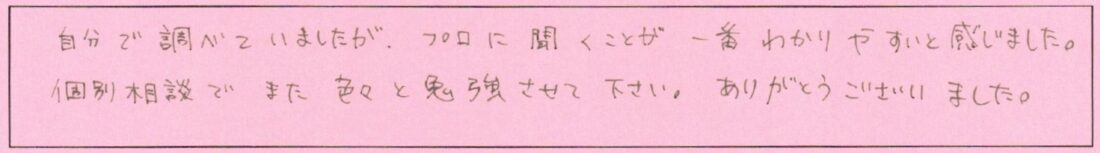 自分で調べていましたが、プロに聞くことが一番わかりやすいと感じました。
個別相談でまた色々と勉強させて下さい。ありがとうございました。